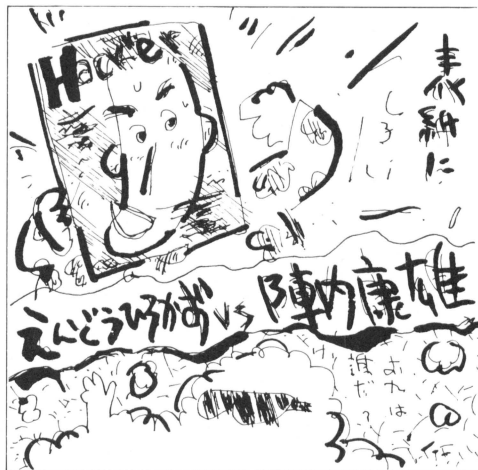 Hacker
表紙に
しろい
えんどうひろかず vs 陣内康雄
おれは
誰だ?